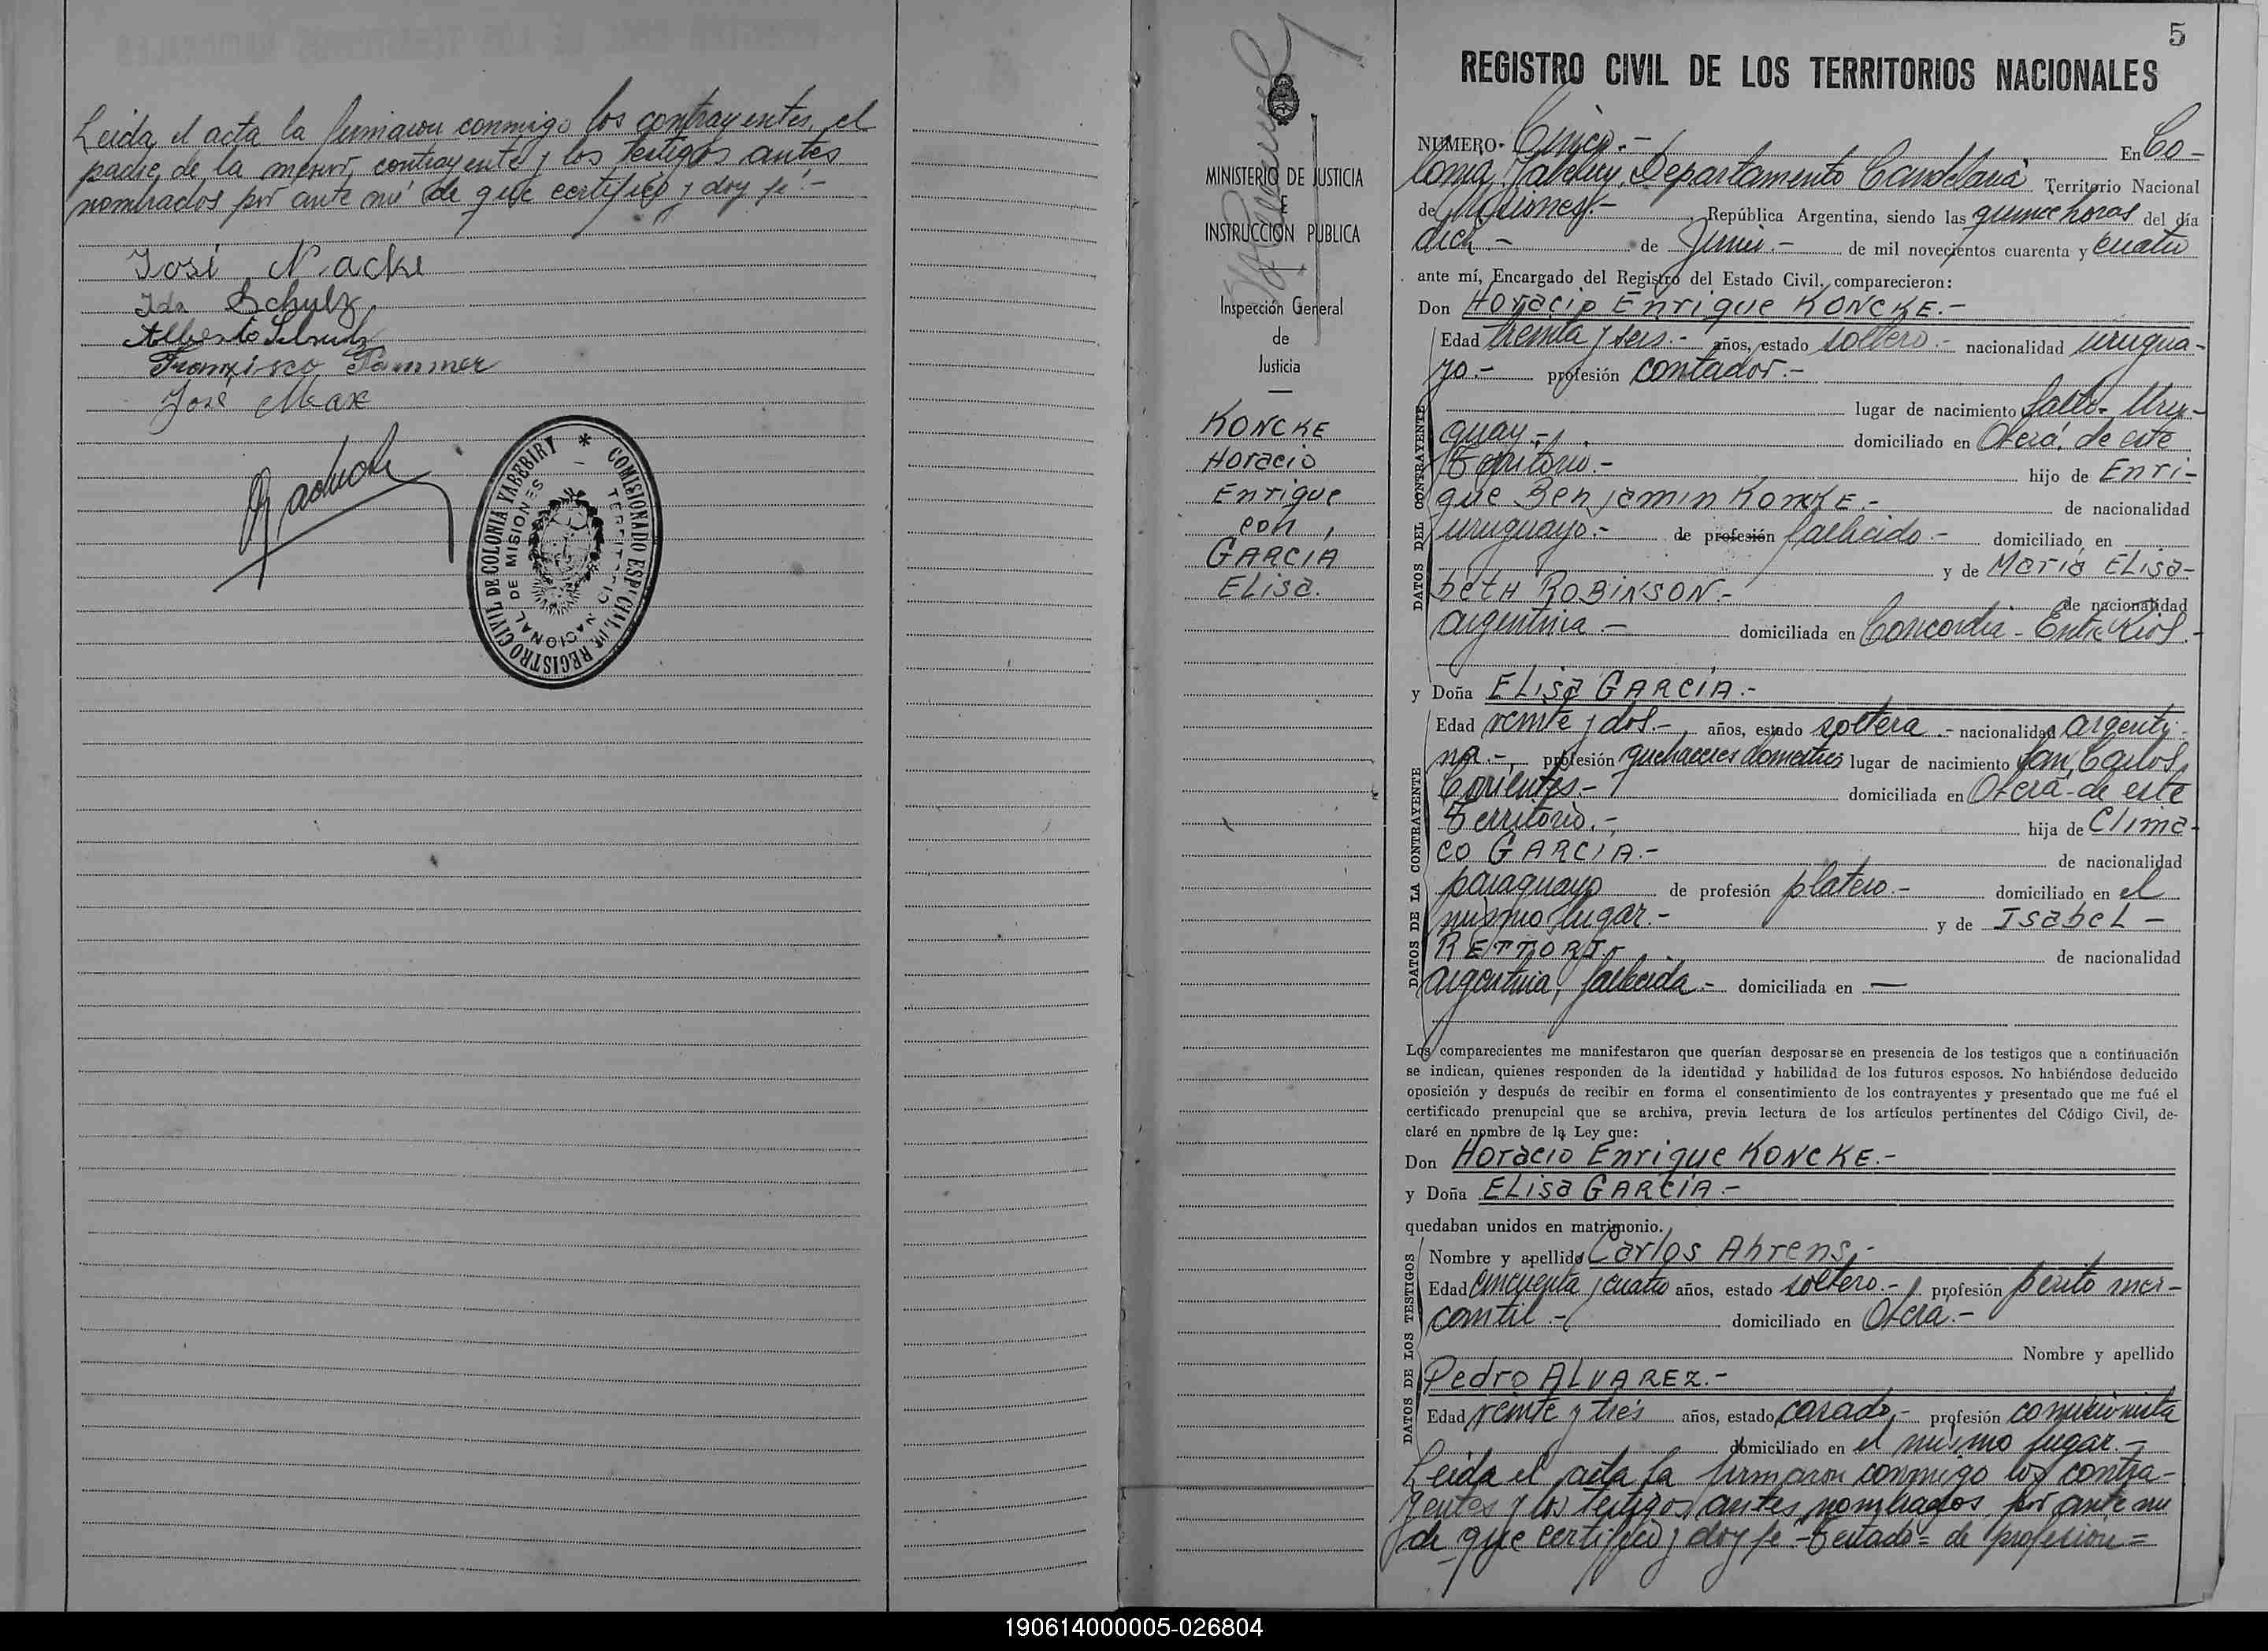 Leida el acta la firmaron conmigo los contrayentes, el
padre de la menor contrayente y los testigos antes
nombrados por ante mí de que certifico y doy fe.-
José Nacke
Ida Schulz
Alberto Schulz
Francisco Sammer
José Max
COMISIONADO ESPECIAL DE REGISTRO CIVIL DE COLONIA YABEBIRI
TERRITORIO NACIONAL DE MISIONES
MINISTERIO DE JUSTICIA
E
INSTRUCCION PUBLICA
Inspección General
de
Justicia
KONCKE
Horacio
Enrique
con
GARCIA
ELisa.
5
REGISTRO CIVIL DE LOS TERRITORIOS NACIONALES
NUMERO- Cinco.- En Co-
lonia Yabebiry, Departamento Candelaria Territorio Nacional
de Misiones.- República Argentina, siendo las quince horas del día
diez - de Junio.- de mil novecientos cuarenta y cuatro
ante mí, Encargado del Registro del Estado Civil, comparecieron:
Don Horacio Enrique KONCKE.-
DATOS DEL CONTRAYENTE
Edad treinta y seis.- años, estado soltero.- nacionalidad urugua-
yo.- profesión contador.-
lugar de nacimiento Salto- Uru-
guay.- domiciliado en Oberá, de este
Territorio.- hijo de Enri-
que Benjamin Koncke.- de nacionalidad
uruguayo.- de profesión fallecido.- domiciliado en
y de Maria ELisa-
beth ROBINSON.- de nacionalidad
argentina.- domiciliada en Concordia - Entre Rios.-
y Doña ELisa GARCÍA.-
DATOS DE LA CONTRAYENTE
Edad veinte y dos.- años, estado soltera.- nacionalidad argenti-
na.- profesión quehaceres domesticos lugar de nacimiento San Carlos
Corrientes.- domiciliada en Oberá- de este
Territorio.- hija de Clima-
co GARCIA.- de nacionalidad
paraguayo de profesión platero.- domiciliado en el
mismo lugar.- y de Isabel -
RETTORI de nacionalidad
argentina, fallecida.- domiciliada en —
Los comparecientes me manifestaron que querían desposarse en presencia de los testigos que a continuación
se indican, quienes responden de la identidad y habilidad de los futuros esposos. No habiéndose deducido
oposición y después de recibir en forma el consentimiento de los contrayentes y presentado que me fué el
certificado prenupcial que se archiva, previa lectura de los artículos pertinentes del Código Civil, de-
claré en nombre de la Ley que:
Don Horacio Enrique KONCKE.-
y Doña ELisa GARCÍA.-
quedaban unidos en matrimonio.
DATOS DE LOS TESTIGOS
Nombre y apellido Carlos Ahrens.-
Edad cincuenta y cuatro años, estado soltero.- profesión perito mer-
cantil.- domiciliado en Oberá.-
Nombre y apellido
Pedro ALVAREZ.-
Edad veinte y tres años, estado casado.- profesión comisionista
domiciliado en el mismo lugar.-
Leida el acta la firmaron conmigo los contra-
yentes y los testigos antes nombrados por ante mi
de que certifico y doy fe.- Testado= de profesion=
190614000005-026804